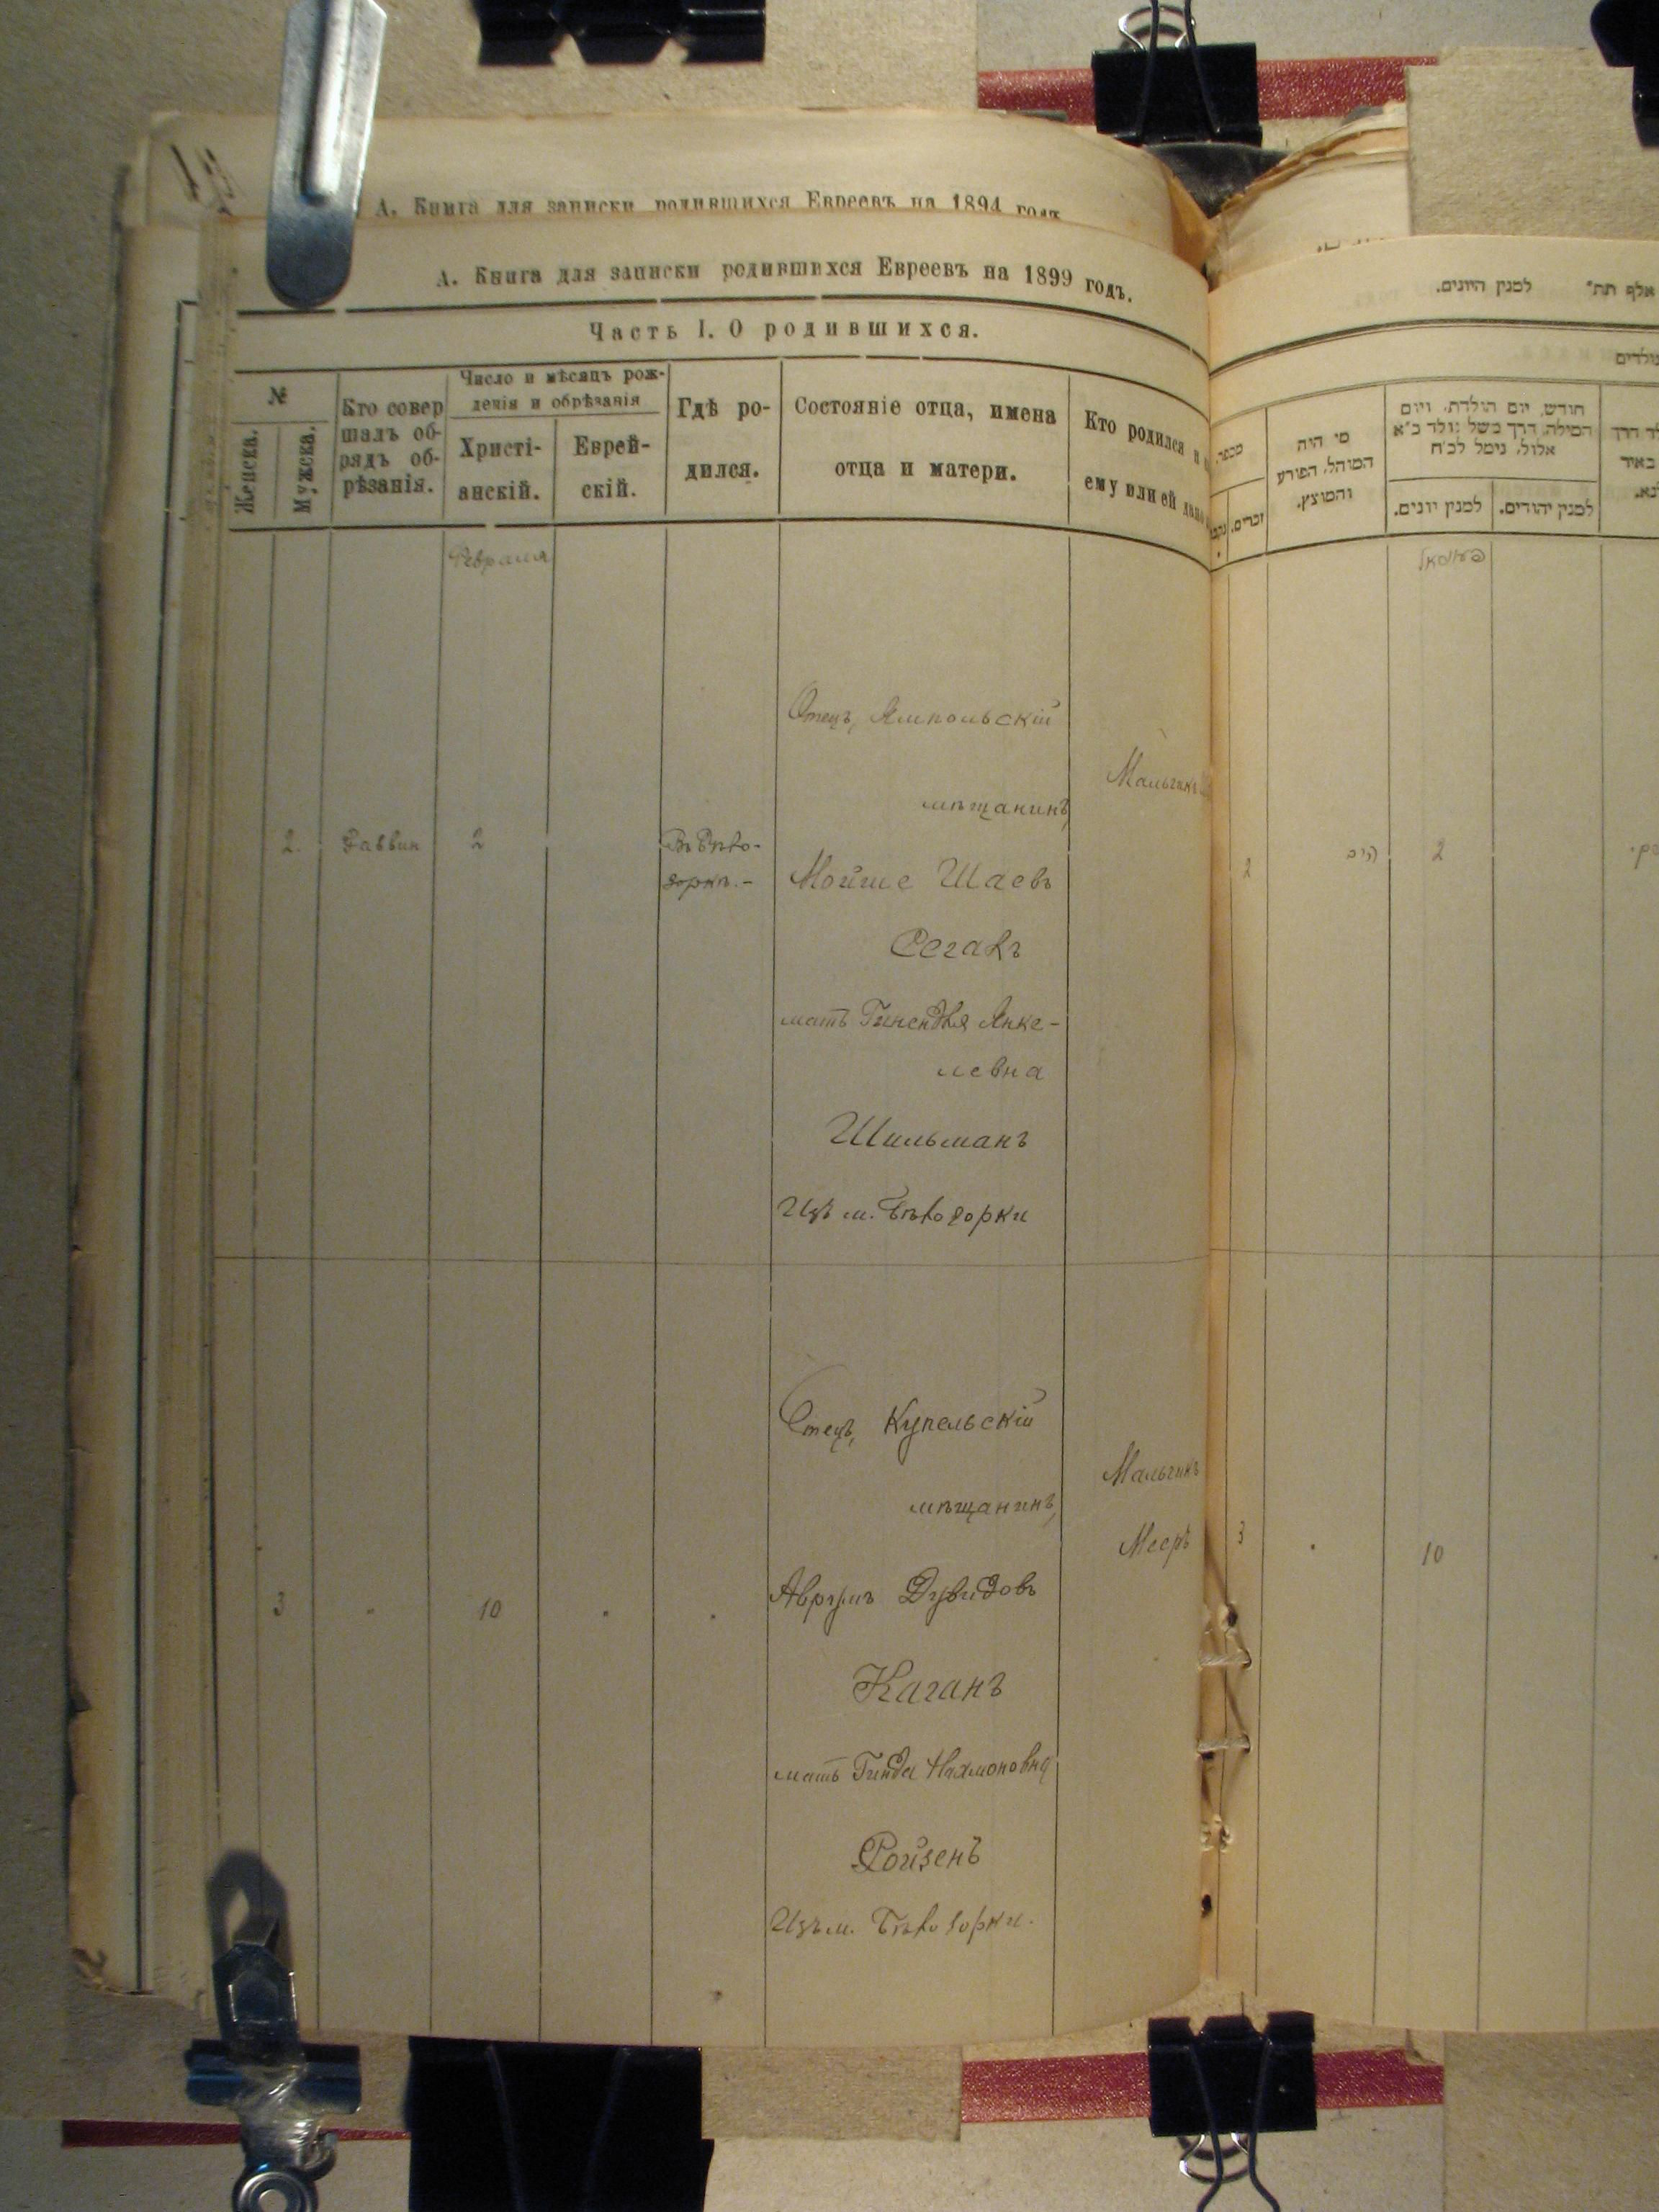 А. Книга для записки родившихся Евреевъ на 1894 годъ
А. Книга для записки родившихся Евреевъ на 1899 годъ.
Часть I. О родившихся.
№
Женска.
Мужска.
Кто совер
шалъ об-
рядъ об-
рѣзанія.
Число и мѣсяцъ рож-
денія и обрѣзанія
Христі-
анскій.
Еврей-
скій.
Гдѣ ро-
дился.
Состояніе отца, имена
отца и матери.
Кто родился и
ему или ей дано
Февраля
2. Раввин 2
Въ Бѣло-
зоркѣ.-
Отецъ, Ямпольскій
мѣщанинъ,
Мойше Шаевъ
Сегалъ
мать Гинендля Янке-
левна
Шильманъ
Изъ м. Бѣлозорки
Мальчикъ
3 10
Отецъ, Купельскій
мѣщанинъ,
Аврумъ Дувидовъ
Каганъ
мать Гинда Нахмоновна
Ройзенъ
Изъ м. Бѣлозорки.
Мальчикъ
Мееръ
אלף תת"
למנין היונים.
מספר.
זכרים.
מי היה
המוהל, הפורע
והמוצץ.
חודש, יום הולדת, ויום
המילה, דרך משל נולד כ"א
אלול, נימל לכ"ח
למנין יונים.
למנין יהודים.
2 2
3 10